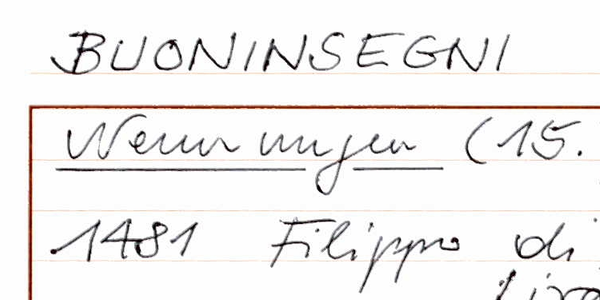 BUONINSEGNI
Nennungen (15.
1481 Filippo di